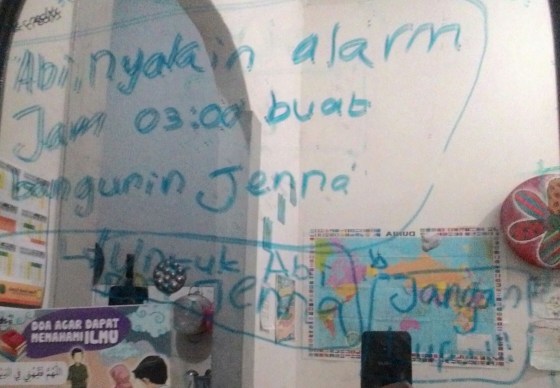 Abi, nyalain alarm
Jam 03:00 buat
bangunin Jenna
→ Untuk Abi
Jenna
Jangan
DUNIA
DOA AGAR DAPAT
MEMAHAMI ILMU